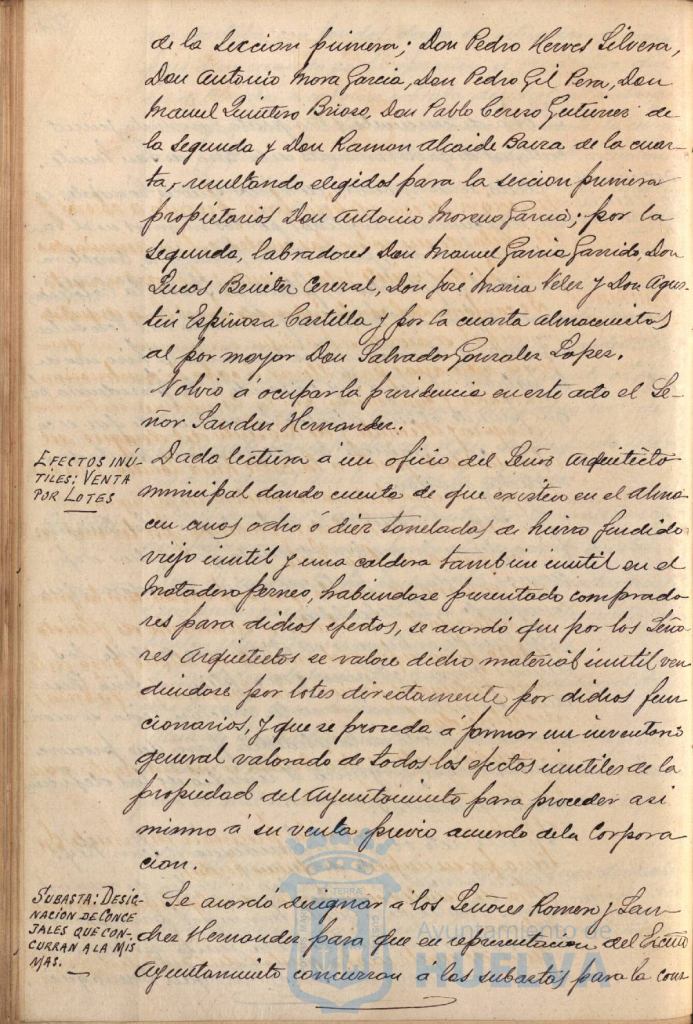 de la Seccion primera; Don Pedro Herves Silvera,
Don Antonio Mora Garcia, Don Pedro Gil Pera, Don
Manuel Quintero Brioso, Don Pablo Cerero Gutierrez de
la Segunda y Don Ramon Alcaide Baeza de la cuar-
ta, resultando elegidos para la seccion primera
propietarios Don Antonio Moreno Garcia; por la
segunda, labradores Don Manuel Garcia Garrido, Don
Lucas Beniter Cereral, Don José Maria Velez y Don Agus-
tin Espinosa Castilla y por la cuarta Almacenistas
al por mayor Don Salvador Gonzalez Lopez.
Volvio á ocupar la presidencia en este acto el Se-
ñor Sanchez Hernandez.
EFECTOS INÚ-
TILES; VENTA
POR LOTES
Dada lectura á un oficio del Señor Arquitecto
municipal dando cuenta de que existen en el Alma
cen unas ocho ó diez toneladas de hierro fundido
viejo inutil y una caldera tambien inutil en el
Matadero perneo, habiendose presentado comprado
res para dichos efectos, se acordó que por los Seño-
res Arquitectos se valore dicho material inutil ven
diendose por lotes directamente por dichos fun
cionarios, y que se proceda á formar un inventario
general valorado de todos los efectos inutiles de la
propiedad del Ayuntamiento para proceder asi
mismo á su venta previo acuerdo de la Corpora
cion.
SUBASTA: DESIG-
NACION DE CONCE
JALES QUE CON-
CURRAN A LA MIS
MAS.
Se acordó designar á los Señores Romero y San
chez Hernandez para que en representacion del Excmo
Ayuntamiento concurran a las subastas para la cons
Ayuntamiento de
HUELVA